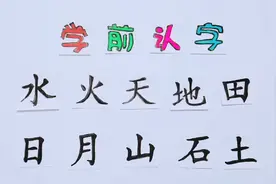 学前认字
水火天地田
日月山石土